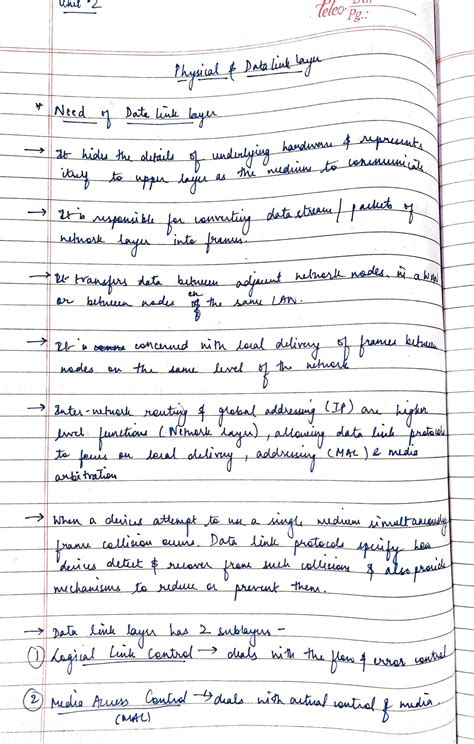 Unit - 2
Pg.:
Physical & Data link layer
* Need of Data link layer
→ It hides the details of underlying hardware & represents
itself to upper layer as the medium to communicate
→ It is responsible for converting data stream / packets of
network layer into frames.
→ It transfers data between adjacent network nodes in a WAN
or between nodes on the same LAN.
→ It is concerned with local delivery of frames between
nodes on the same level of the network
→ Inter-network routing & global addressing (IP) are higher
level functions (Network layer), allowing data link protocols
to focus on local delivery, addressing (MAC) & media
arbitration
→ When a devices attempt to use a single medium simultaneously
frame collision occurs. Data link protocols specify how
devices detect & recover from such collisions & also provide
mechanisms to reduce or prevent them.
→ Data link layer has 2 sublayers -
① Logical Link Control → deals with the flow & error control
② Media Access Control → deals with actual control of media.
(MAC)